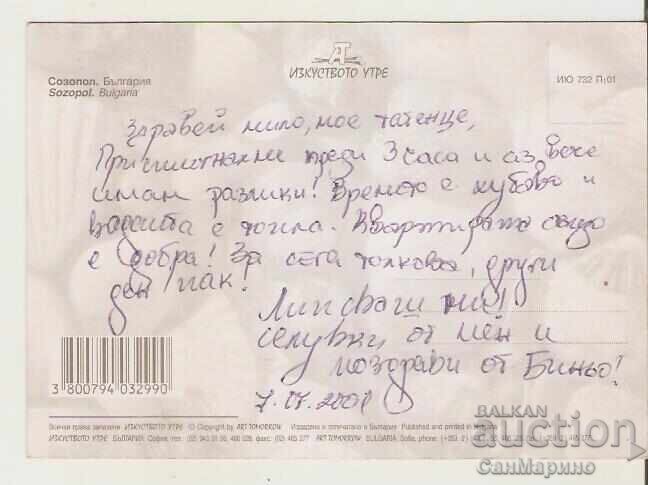 ИЗКУСТВОТО УТРЕ
Созопол. България
Sozopol. Bulgaria
ИЮ 732 П;01
Здравей мило, мое татенце,
преди 3 часа и аз вече
имам разлики! Времето е хубаво и
водата е топла. Квартирата също
е добра! За сега толкова, други
ден пак.
Липсваш ми!
целувки от мен и
поздрави от Биньо!
7.07.2001
3 800794 032990
Всички права запазени ИЗКУСТВОТО УТРЕ © Copyright by ART TOMORROW Издадена и отпечатана в България Published and printed in Bulgaria
ИЗКУСТВОТО УТРЕ БЪЛГАРИЯ: София, тел.: (02) 943 51 56, 466 028, факс: (02) 465 377 ART TOMORROW BULGARIA: Sofia, phone:
BALKAN
auction
СанМарино